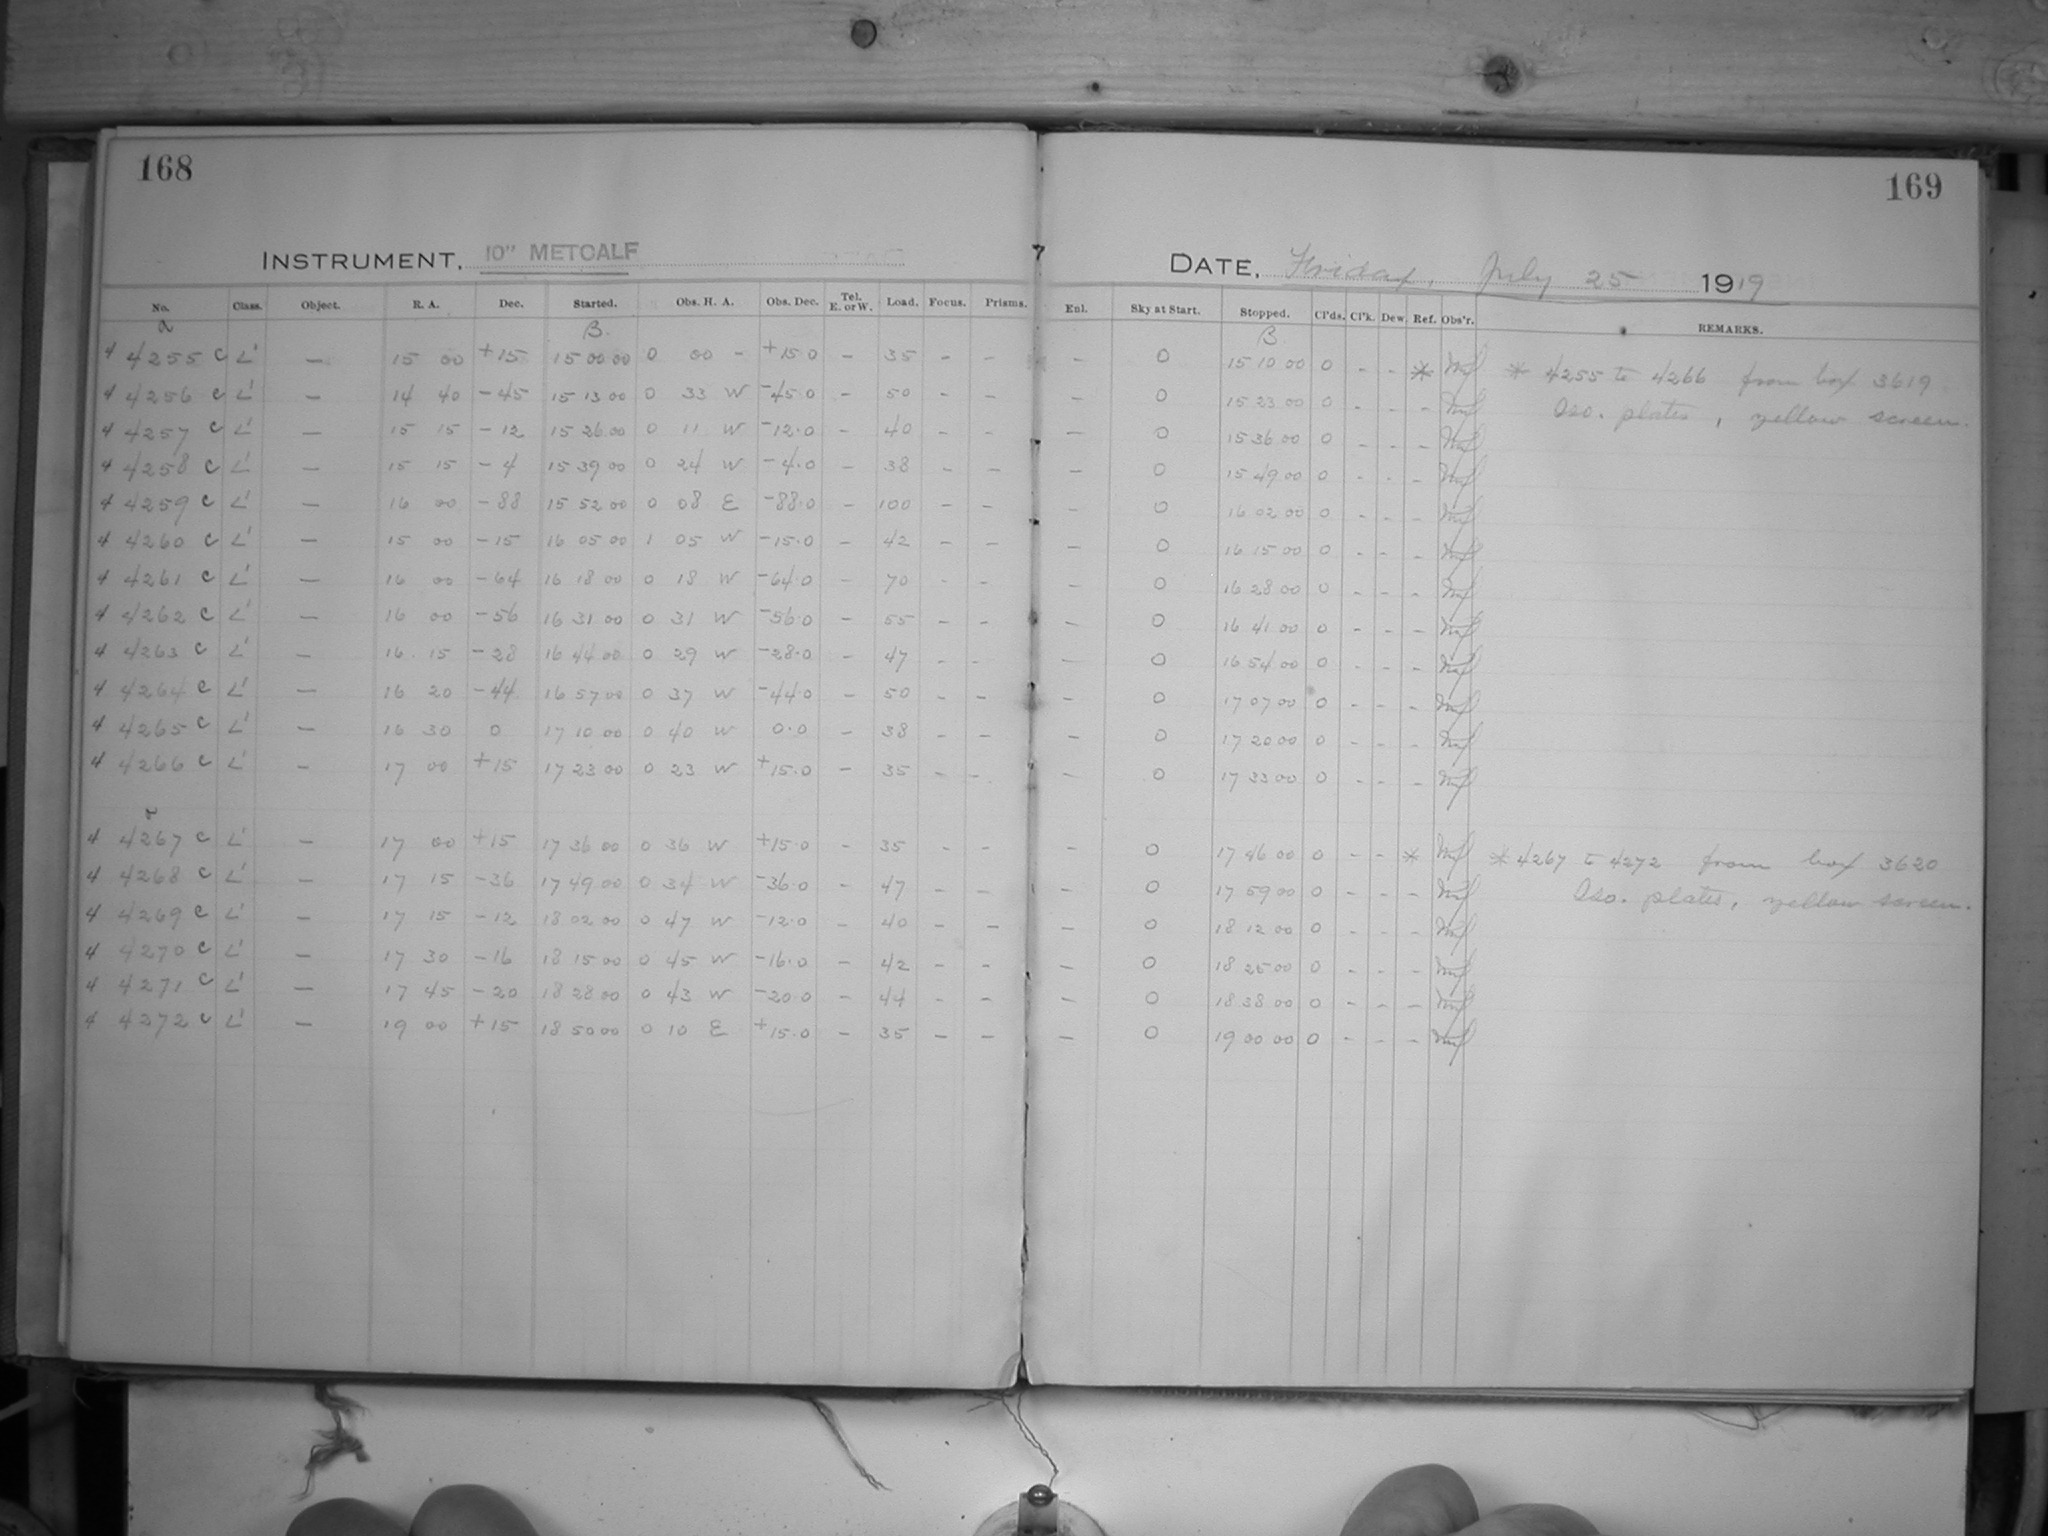 168
169
INSTRUMENT, 10" METCALF
DATE, Friday, July 25 1919
No. Class. Object. R. A. Dec. Started. Obs. H. A. Obs. Dec. Tel. E. or W. Load. Focus. Prisms. Enl. Sky at Start. Stopped. Cl'ds. Cl'k. Dew. Ref. Obs'r. REMARKS.
a B. B
4 4255 c L' — 15 00 +15 15 00 00 0 00 - +15.0 - 35 - - - 0 15 10 00 0 - - * * 4255 to 4266 from box 3619
4 4256 c L' — 14 40 -45 15 13 00 0 33 W -45.0 - 50 - - - 0 15 23 00 0 - - - Iso. plates, yellow screen.
4 4257 c L' — 15 15 -12 15 26 00 0 11 W -12.0 - 40 - - - 0 15 36 00 0 - - -
4 4258 c L' — 15 15 -4 15 39 00 0 24 W -4.0 - 38 - - - 0 15 49 00 0 - - -
4 4259 c L' — 16 00 -88 15 52 00 0 08 E -88.0 - 100 - - - 0 16 02 00 0 - - -
4 4260 c L' — 15 00 -15 16 05 00 1 05 W -15.0 - 42 - - - 0 16 15 00 0 - - -
4 4261 c L' — 16 00 -64 16 18 00 0 18 W -64.0 - 70 - - - 0 16 28 00 0 - - -
4 4262 c L' — 16 00 -56 16 31 00 0 31 W -56.0 - 55 - - - 0 16 41 00 0 - - -
4 4263 c L' — 16 15 -28 16 44 00 0 29 W -28.0 - 47 - - - 0 16 54 00 0 - - -
4 4264 c L' — 16 20 -44 16 57 00 0 37 W -44.0 - 50 - - - 0 17 07 00 0 - - -
4 4265 c L' — 16 30 0 17 10 00 0 40 W 0.0 - 38 - - - 0 17 20 00 0 - - -
4 4266 c L' — 17 00 +15 17 23 00 0 23 W +15.0 - 35 - - - 0 17 33 00 0 - - -
4 4267 c L' — 17 00 +15 17 36 00 0 36 W +15.0 - 35 - - - 0 17 46 00 0 - - * * 4267 to 4272 from box 3620
4 4268 c L' — 17 15 -36 17 49 00 0 34 W -36.0 - 47 - - - 0 17 59 00 0 - - - Iso. plates, yellow screen.
4 4269 c L' — 17 15 -12 18 02 00 0 47 W -12.0 - 40 - - - 0 18 12 00 0 - - -
4 4270 c L' — 17 30 -16 18 15 00 0 45 W -16.0 - 42 - - - 0 18 25 00 0 - - -
4 4271 c L' — 17 45 -20 18 28 00 0 43 W -20.0 - 44 - - - 0 18 38 00 0 - - -
4 4272 c L' — 19 00 +15 18 50 00 0 10 E +15.0 - 35 - - - 0 19 00 00 0 - - -